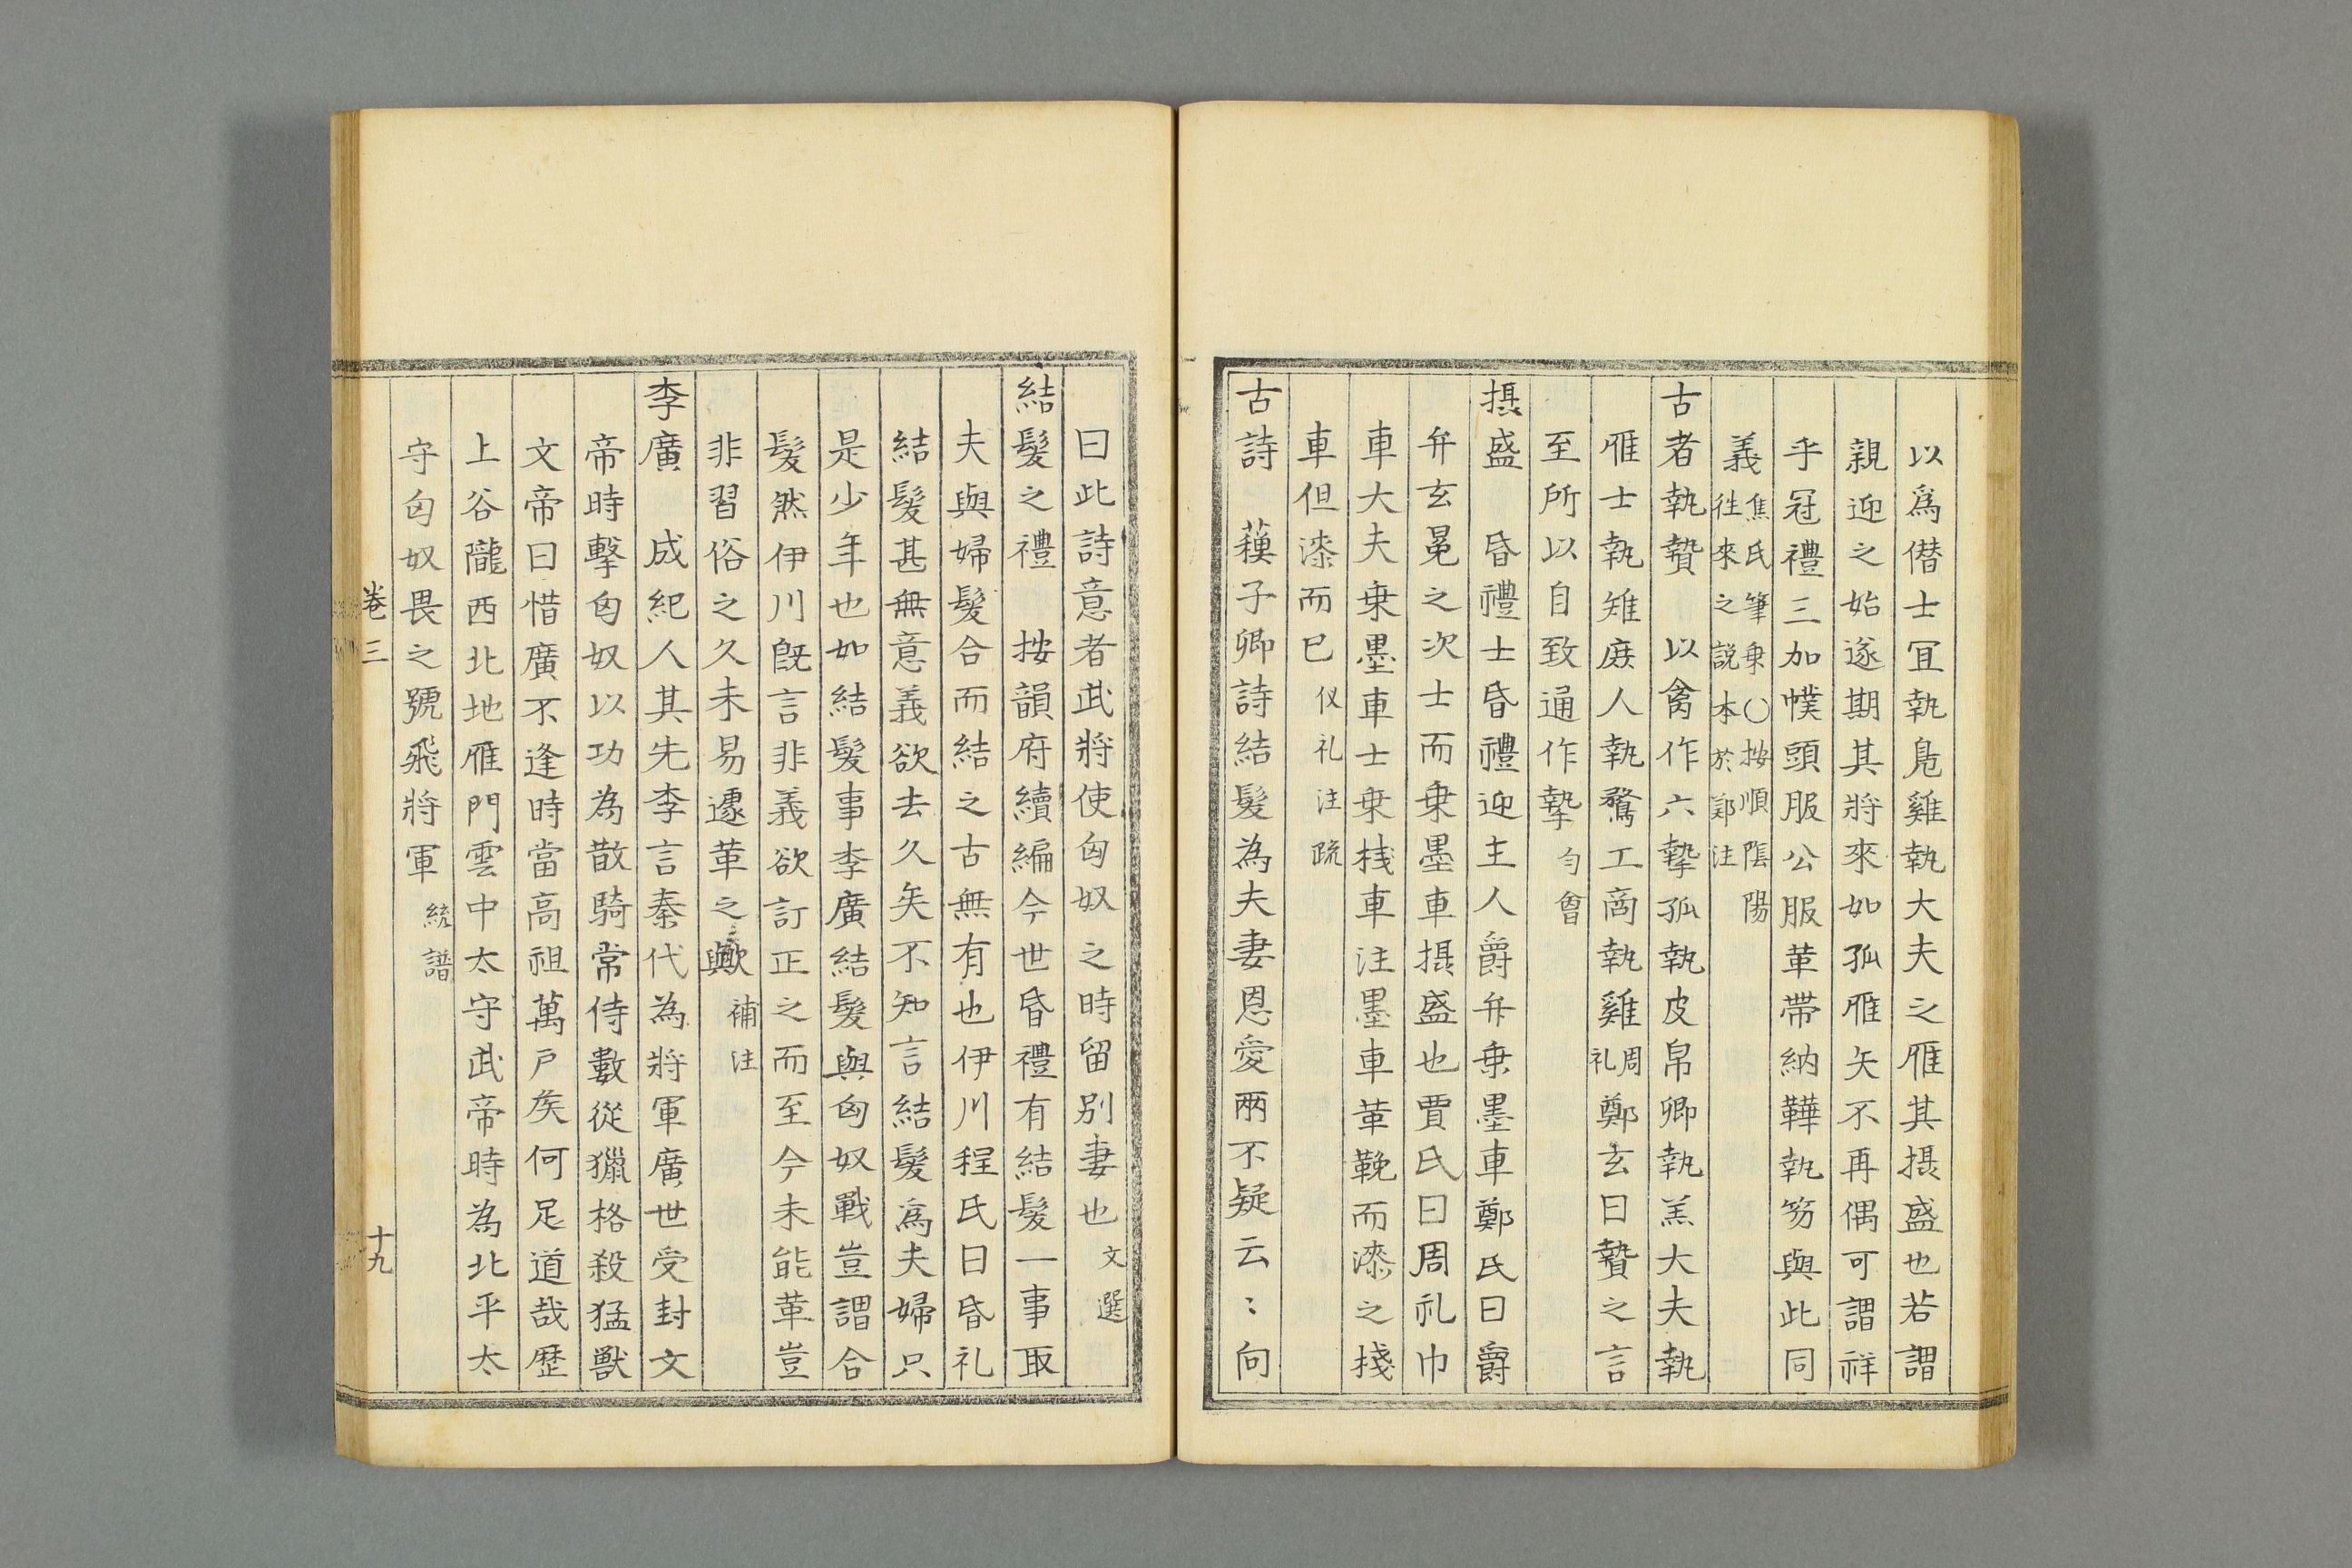 以爲僣士冝執鳬雞執大夫之雁其摂盛也若謂
親迎之始遂期其將來如孤雁矢不再偶可謂祥
乎冠禮三加幞頭服公服革帶納鞾執笏與此同
義焦氏筆乗〇按順隂陽
徃來之說本於鄭注
古者執贄　以禽作六摯孤執皮帛卿執羔大夫執
雁士執雉庻人執鶩工啇執雞周礼鄭玄曰贄之言
至所以自致通作摯匀會
摂盛　昏禮士昏禮迎主人爵弁乗墨車鄭氏曰爵
弁玄冕之次士而乗墨車摂盛也賈氏曰周礼巾
車大夫乗墨車士乗栈車注墨車革鞔而漆之棧
車但漆而巳仪礼注疏
古詩　蘓子卿詩結髮為夫妻恩愛兩不疑云〻向
曰此詩意者武將使匈奴之時留別妻也文選
結髮之禮　按韻府續編今世昏禮有結髮一事取
夫與婦髮合而結之古無有也伊川程氏曰昏礼
結髮甚無意義欲去久矣不知言結髮爲夫婦只
是少年也如結髮事李廣結髮與匈奴戰豈謂合
髮然伊川旣言非義欲訂正之而至今未能革豈
非習俗之久未易遽革之歟補注
李廣　成紀人其先李言秦代為將軍廣世受封文
帝時擊匈奴以功為散騎常侍數從獵格殺猛獸
文帝曰惜廣不逢時當高祖萬戶矦何足道哉歴
上谷隴西北地雁門雲中太守武帝時為北平太
守匈奴畏之號飛將軍統譜
卷三
十九